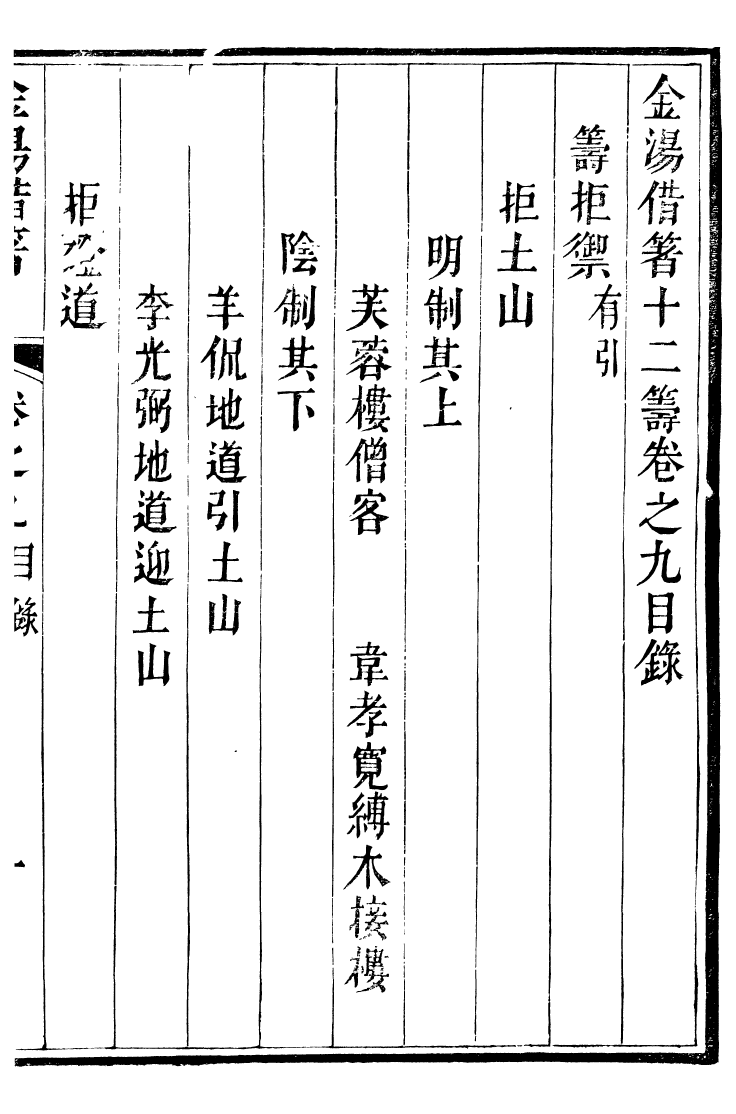 金湯借箸十二籌卷之九目錄
籌拒禦 有引
拒土山
明制其上
芙蓉樓僧客 韋孝寬縛木接樓
陰制其下
羊侃地道引土山
李光弼地道迎土山
拒道
金湯借箸 卷之九 目錄 一